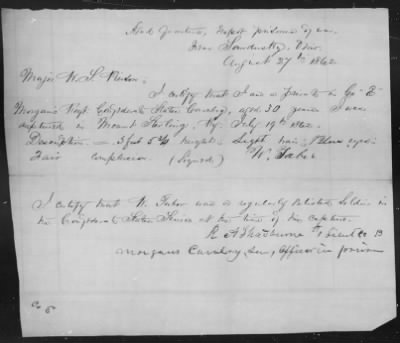 Head Quarters, Depot prisoners of war,
Near Sandusky, Ohio.
August 27th 1862
Major W. S. Pierson.
I certify that I am a private in Co. E
Morgan's Regt Confederate States Cavalry, aged 30 years I was
captured in Mount Sterling, Ky. July 19th 1862.
Description — 5 feet 5 height, Light hair, Blue eyes
Fair complexion. (Signed) W. Faber
I certify that W. Faber was a regularly Enlisted Soldier in
the Confederate States Service at the time of his capture.
R A Lieut Co B
Morgans Cavalry, Sen, Officer in prison